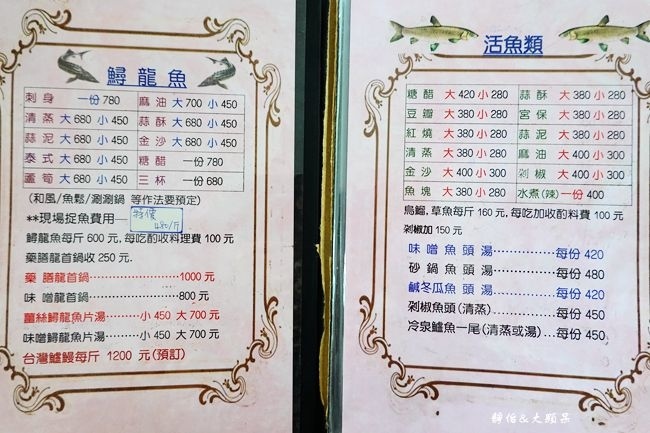 鱘龍魚
刺身 一份 780 麻油 大 700 小 450
清蒸 大 680 小 450 蒜酥 大 680 小 450
蒜泥 大 680 小 450 金沙 大 680 小 450
泰式 大 680 小 450 糖醋 一份 780
蘆筍 大 680 小 450 三杯 一份 680
(和風/魚鬆/涮涮鍋 等作法要預定)
**現場捉魚費用— 特價 480/斤
鱘龍魚每斤 600 元,每吃酌收料理費 100 元
藥膳龍首鍋收 250 元.
藥 膳龍首鍋……………………1000 元
味 噌龍首鍋……………………800 元
薑絲鱘龍魚片湯……小 450 大 700 元
味噌鱘龍魚片湯……小 450 大 700 元
台灣鱸鰻每斤 1200 元(預訂)
活魚類
糖醋 大 420 小 280 蒜酥 大 380 小 280
豆瓣 大 380 小 280 宮保 大 380 小 280
紅燒 大 380 小 280 蒜泥 大 380 小 280
清蒸 大 380 小 280 麻油 大 400 小 300
金沙 大 400 小 300 剁椒 大 400 小 300
魚塊 大 380 小 280 水煮(辣) 一份 400
烏鰡,草魚每斤 160 元,每吃加收酌料費 100 元
剁椒加 150 元
味 噌 魚 頭 湯………每份 420
砂 鍋 魚 頭 湯………每份 480
鹹冬瓜魚 頭 湯………每份 420
剁椒魚頭(清蒸)………每份 450
冷泉鱸魚一尾(清蒸或湯)…每份 450
靜怡&大顆呆